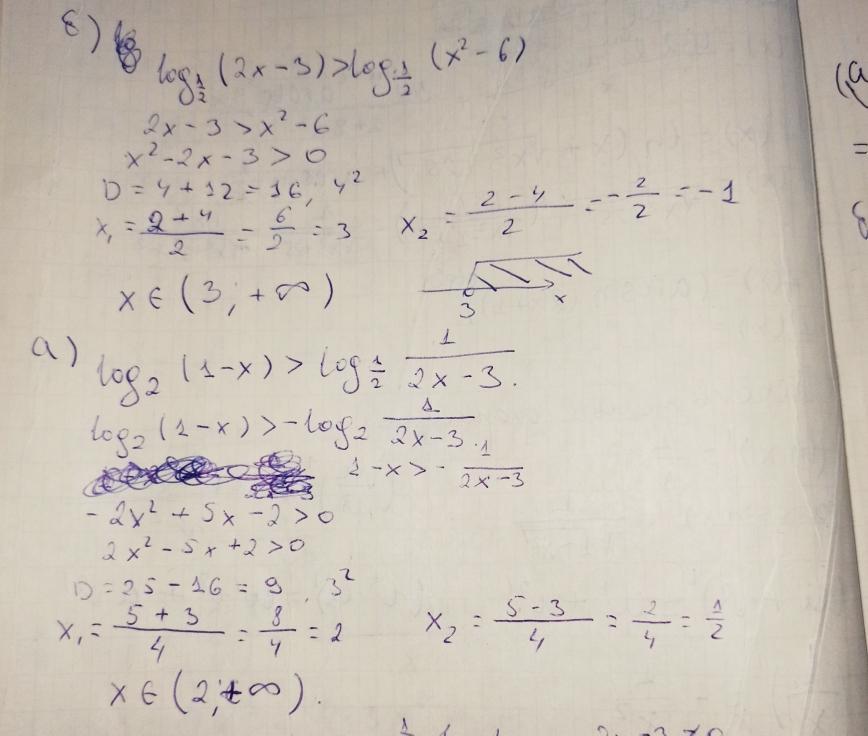 б) log_{1/2} (2x-3) > log_{1/2} (x²-6)
2x-3 > x²-6
x²-2x-3 > 0
D = 4+12 = 16, 4²
x₁ = (2+4)/2 = 6/2 = 3 x₂ = (2-4)/2 = -2/2 = -1
x ∈ (3; +∞)
3 x
а) log₂ (1-x) > log_{1/2} 1/(2x-3).
log₂ (1-x) > -log₂ 1/(2x-3).
1-x > - 1/(2x-3)
-2x² + 5x - 2 > 0
2x² - 5x + 2 > 0
D = 25-16 = 9, 3²
x₁ = (5+3)/4 = 8/4 = 2 x₂ = (5-3)/4 = 2/4 = 1/2
x ∈ (2; +∞).